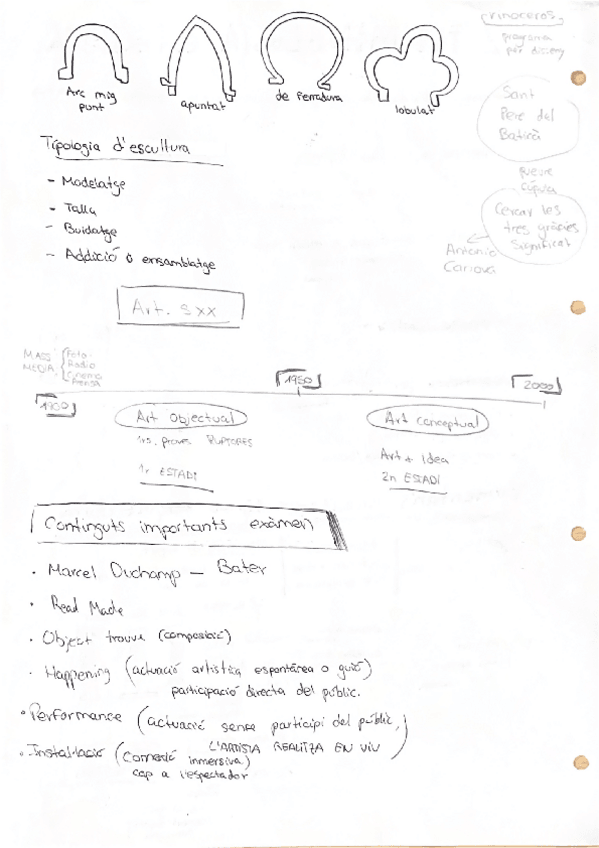 rinoceros.
programa
per disseny
Arc mig
punt
apuntat
de ferradura
lobulat
Sant
Pere del
Tipologia d'escultura
- Modelatge
- Talla
- Buidatge
- Addició o ensamblatge
veure
cúpula
Cercar les
tres gràcies
significat
Antonio
Canova
Art. s xx
MASS
MEDIA.
Foto.
Radio
Cinema
Prensa
1900
1950
2000
Art objectual
1rs. proves RUPTORES
1r ESTADI
Art conceptual
Art + Idea
2n ESTADI
Continguts importants exàmen
· Marcel Duchamp — Bater
· Read Made
· Object trouve (composició)
· Happening (actuació artística espontánea o guió)
participació directa del públic.
· Performance (actuació sense participi del públic,
L'ARTISTA REALITZA EN VIU)
· Instal·lació (Comexió inmersiva)
cap a l'espectador